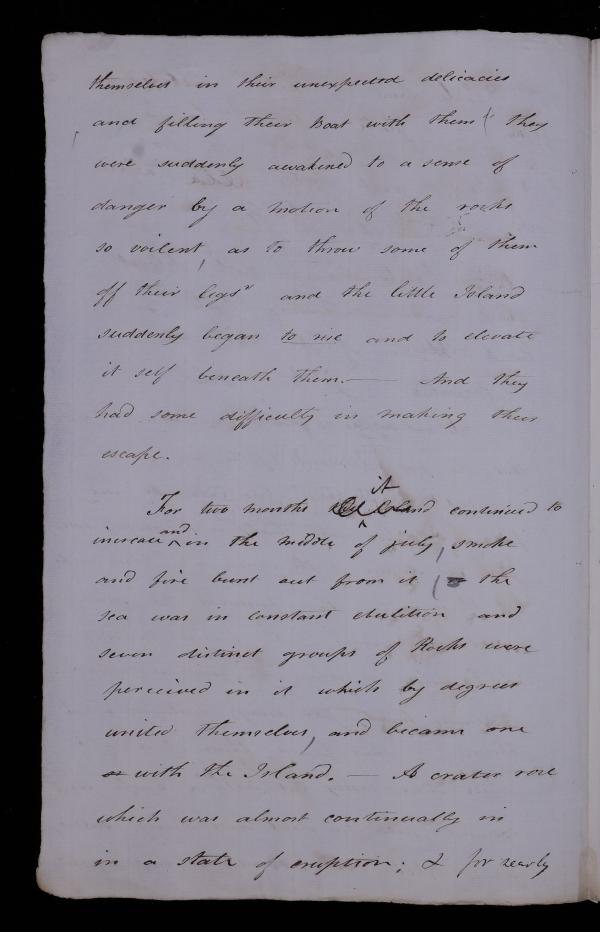 themselves in their unexpected delicacies
and filling their Boat with them they
were suddenly awakened to a sense of
danger by a motion of the rocks
so voilent, as to throw some of them
off their legs and the little Island
suddenly began to rise and to elevate
it self beneath them. — And they
had some difficulty in making their
escape.
it
For two months continued to
increase and in the middle of july, smoke
and fire burst out from it the
sea was in constant ebulition and
seven distinct groups of Rocks were
perceived in it which by degrees
united themselves, and became one
with the Island. — A crater rose
which was almost continually in
in a state of eruption; & for nearly